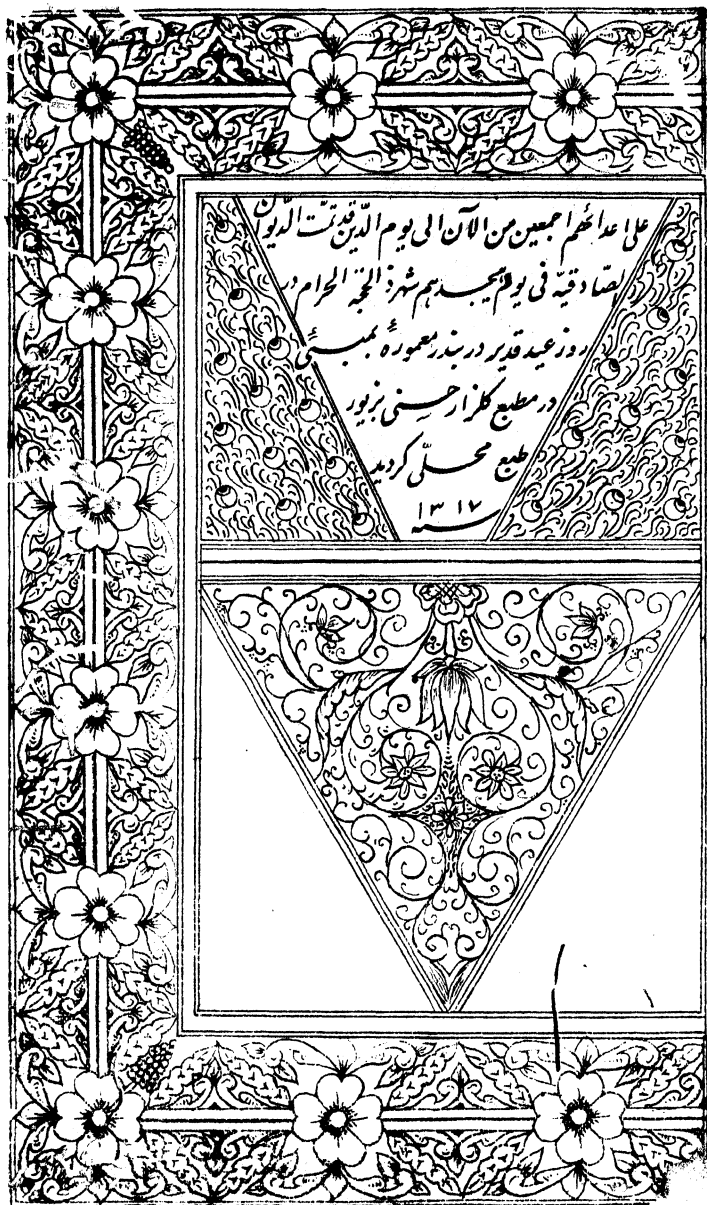 علی اعدائهم اجمعین من الآن الی یوم الدّین قد تمّت الدّیوان
الصّادقیّه فی یوم هیجدهم شهر ذالحجّة الحرام در
روز عید قدیر در بندر معمورهٔ بمبئی
در مطبع کلزار حسنی بزیور
طبع محلّی کردید
سنه ۱۳۱۷